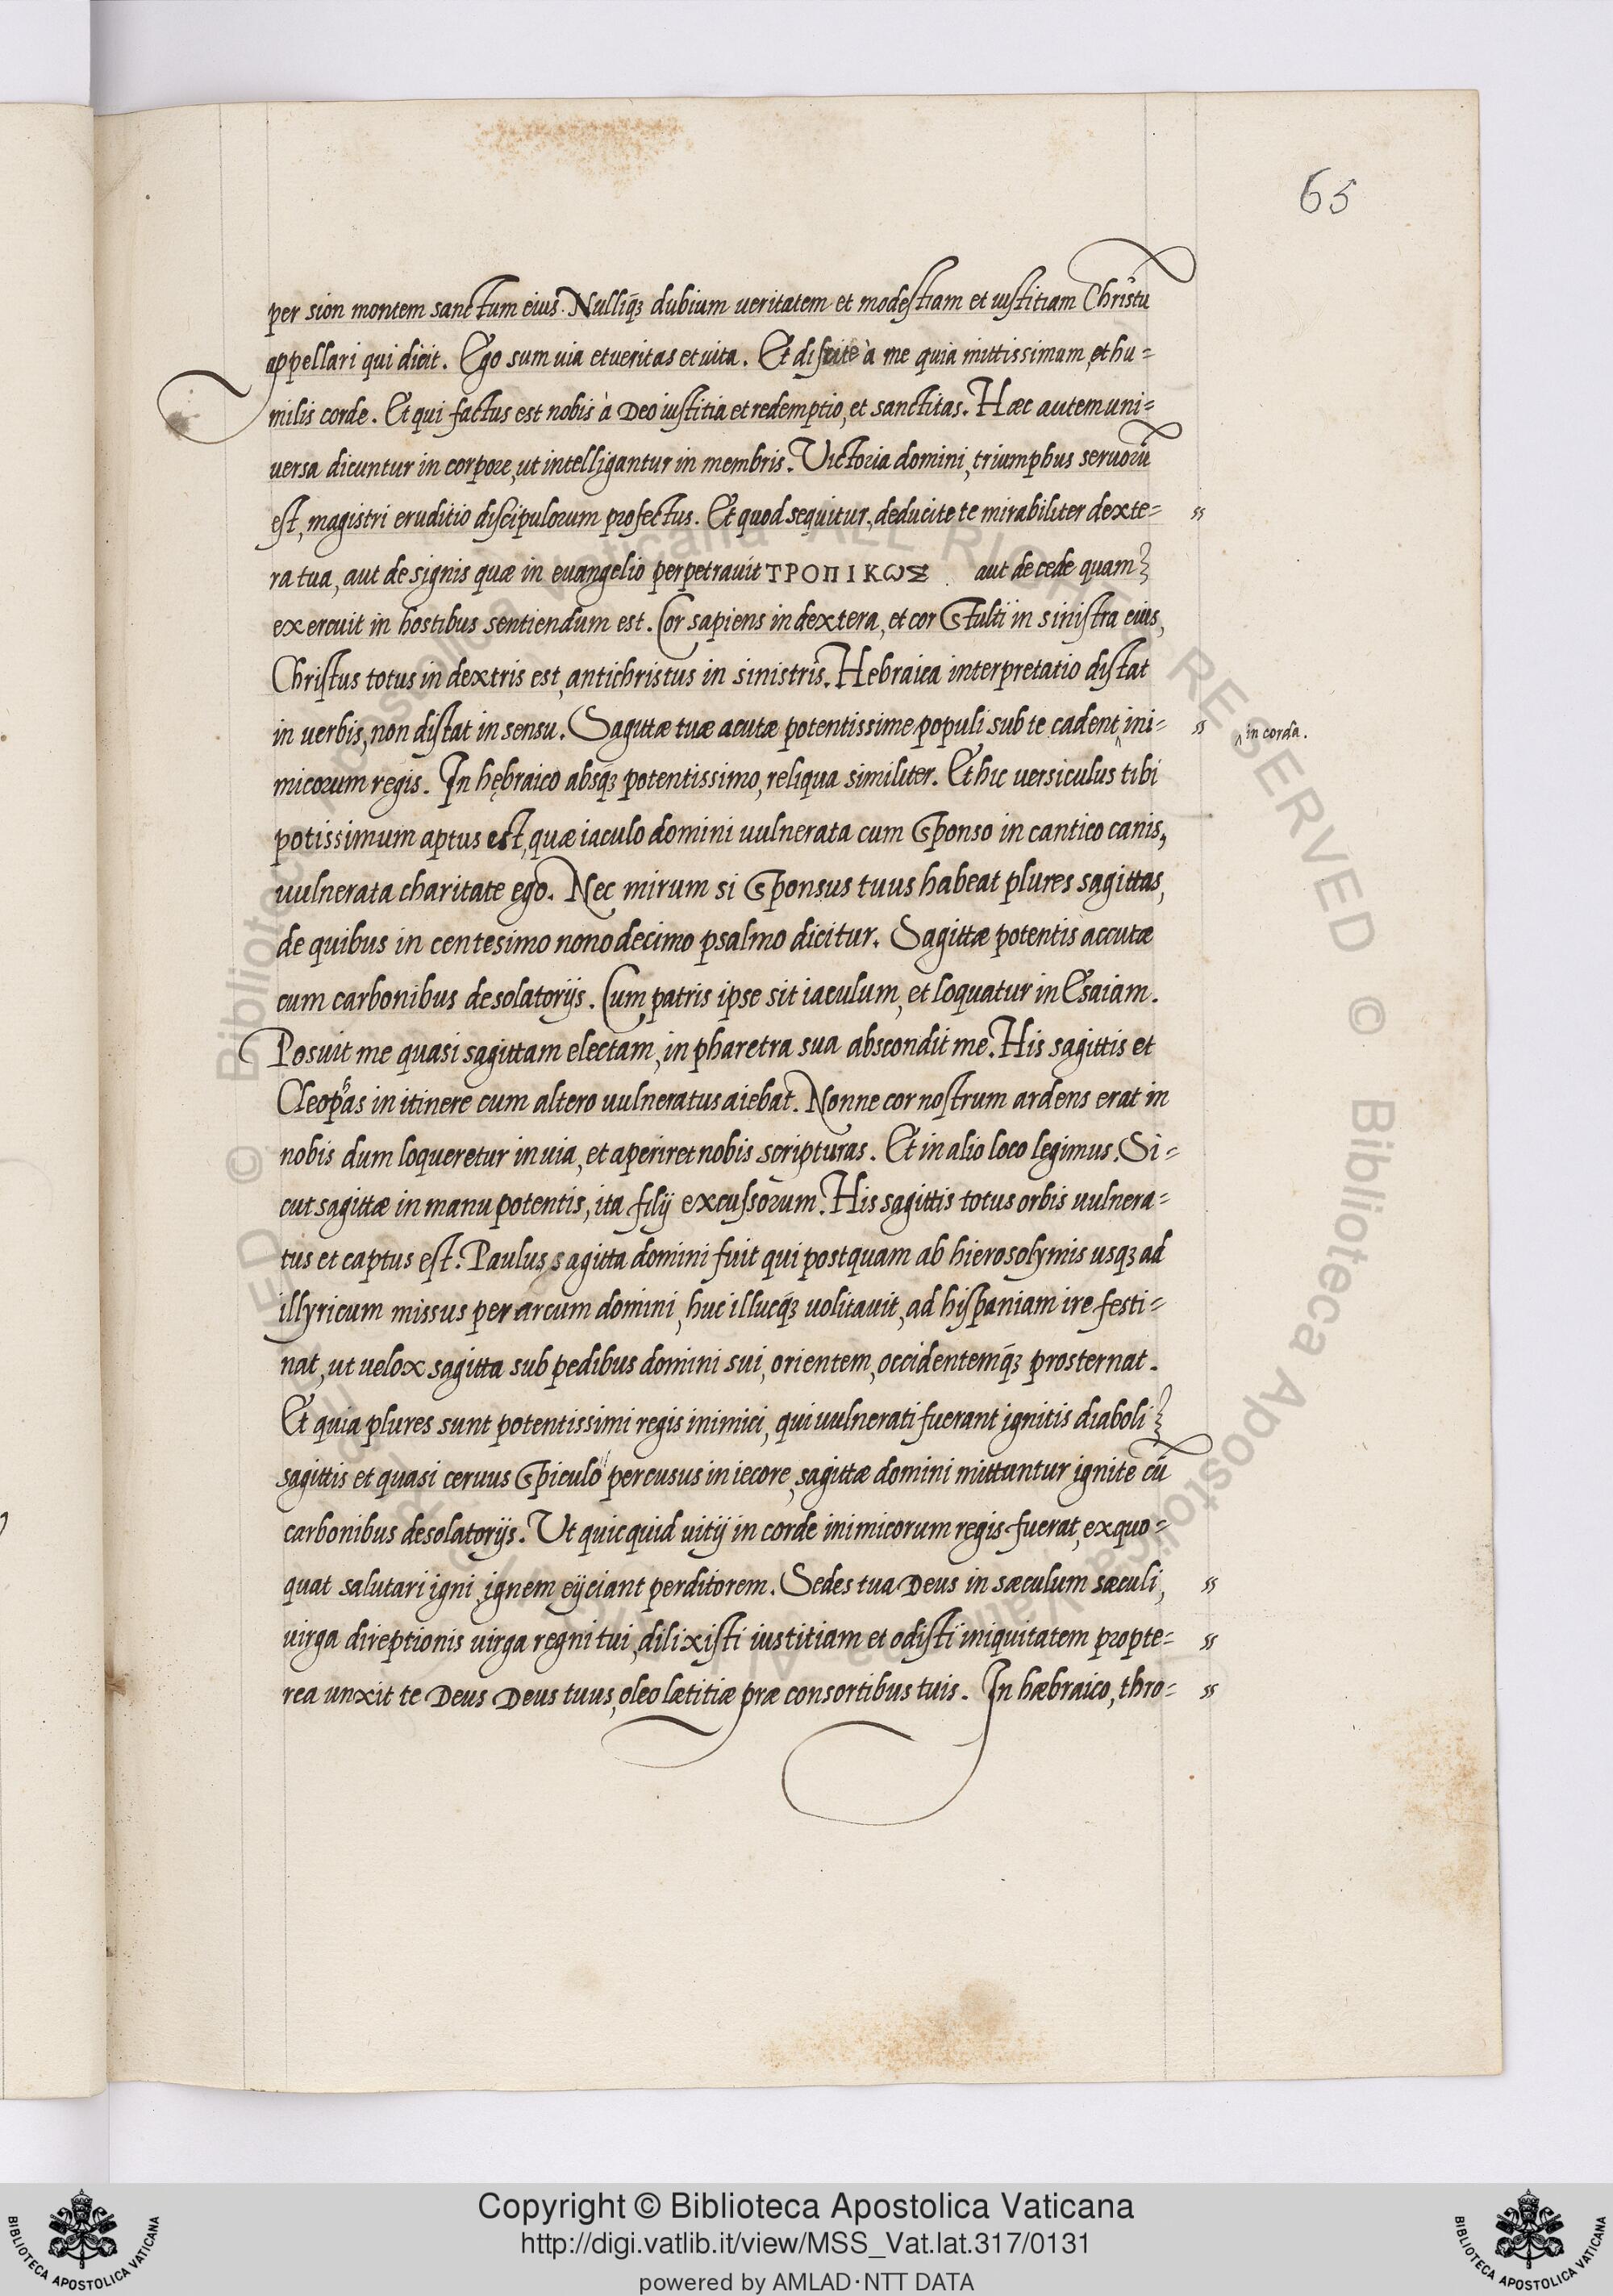 65
per sion montem sanctum eius. Nulliq́ꝫ dubium ueritatem et modestiam et iustitiam Christū
appellari qui dicit. Ego sum uia et ueritas et uita. Et discite à me quia mittissimum, et hu=
milis corde. Et qui factus est nobis à Deo iustitia et redemptio, et sanctitas. Hæc autem uni=
uersa dicuntur in corpore, ut intelligantur in membris. Victoria domini, triumphus seruorū
est, magistri eruditio discipulorum profectus. Et quod sequitur, deducite te mirabiliter dexte=
ra tua, aut de signis quæ in euangelio perpetrauit ΤΡΟΠΙΚΩΣ aut de cede quam
exercuit in hostibus sentiendum est. Cor sapiens in dextera, et cor Stulti in sinistra eius,
Christus totus in dextris est, antichristus in sinistris. Hebraica interpretatio distat
in uerbis, non distat in sensu. Sagittæ tuæ acutæ potentissime populi sub te cadent ‸ ini=
‸ in corda.
micorum regis. In hębraico absq́ꝫ potentissimo, reliqua similiter. Et hic uersiculus tibi
potissimum aptus est, quæ iaculo domini uulnerata cum Sponso in cantico canis,
uulnerata charitate ego. Nec mirum si Sponsus tuus habeat plures sagittas,
de quibus in centesimo nono decimo psalmo dicitur. Sagittæ potentis accutæ
cum carbonibus desolatorijs. Cum patris ipse sit iaculum, et loquatur in Esaiam.
Posuit me quasi sagittam electam, in pharetra sua abscondit me. His sagittis et
Cleophas in itinere cum altero uulneratus aiebat. Nonne cor nostrum ardens erat in
nobis dum loqueretur in uia, et aperiret nobis scripturas. Et in alio loco legimus. Si=
cut sagittæ in manu potentis, ita filij excussorum. His sagittis totus orbis uulnera=
tus et captus est. Paulus sagitta domini fuit qui postquam ab hierosolymis usqꝫ ad
illyricum missus per arcum domini, huc illucq́ꝫ uolitauit, ad hispaniam ire festi=
nat, ut uelox sagitta sub pedibus domini sui, orientem, occidentemq́ꝫ prosternat.
Et quia plures sunt potentissimi regis inimici, qui uulnerati fuerant ignitis diaboli
sagittis et quasi ceruus Spiculo percusus in iecore, sagittæ domini mittuntur ignite cū
carbonibus desolatorijs. Ut quicquid uitij in corde inimicorum regis fuerat, exquo=
quat salutari igni, ignem eijciant perditorem. Sedes tua Deus in sæculum sæculi,
uirga direptionis uirga regni tui, dilixisti iustitiam et odisti iniquitatem propte=
rea unxit te Deus Deus tuus, oleo lætitiæ præ consortibus tuis. In hæbraico, thro=
Copyright © Biblioteca Apostolica Vaticana
http://digi.vatlib.it/view/MSS_Vat.lat.317/0131
powered by AMLAD·NTT DATA
BIBLIOTECA APOSTOLICA VATICANA
BIBLIOTECA APOSTOLICA VATICANA